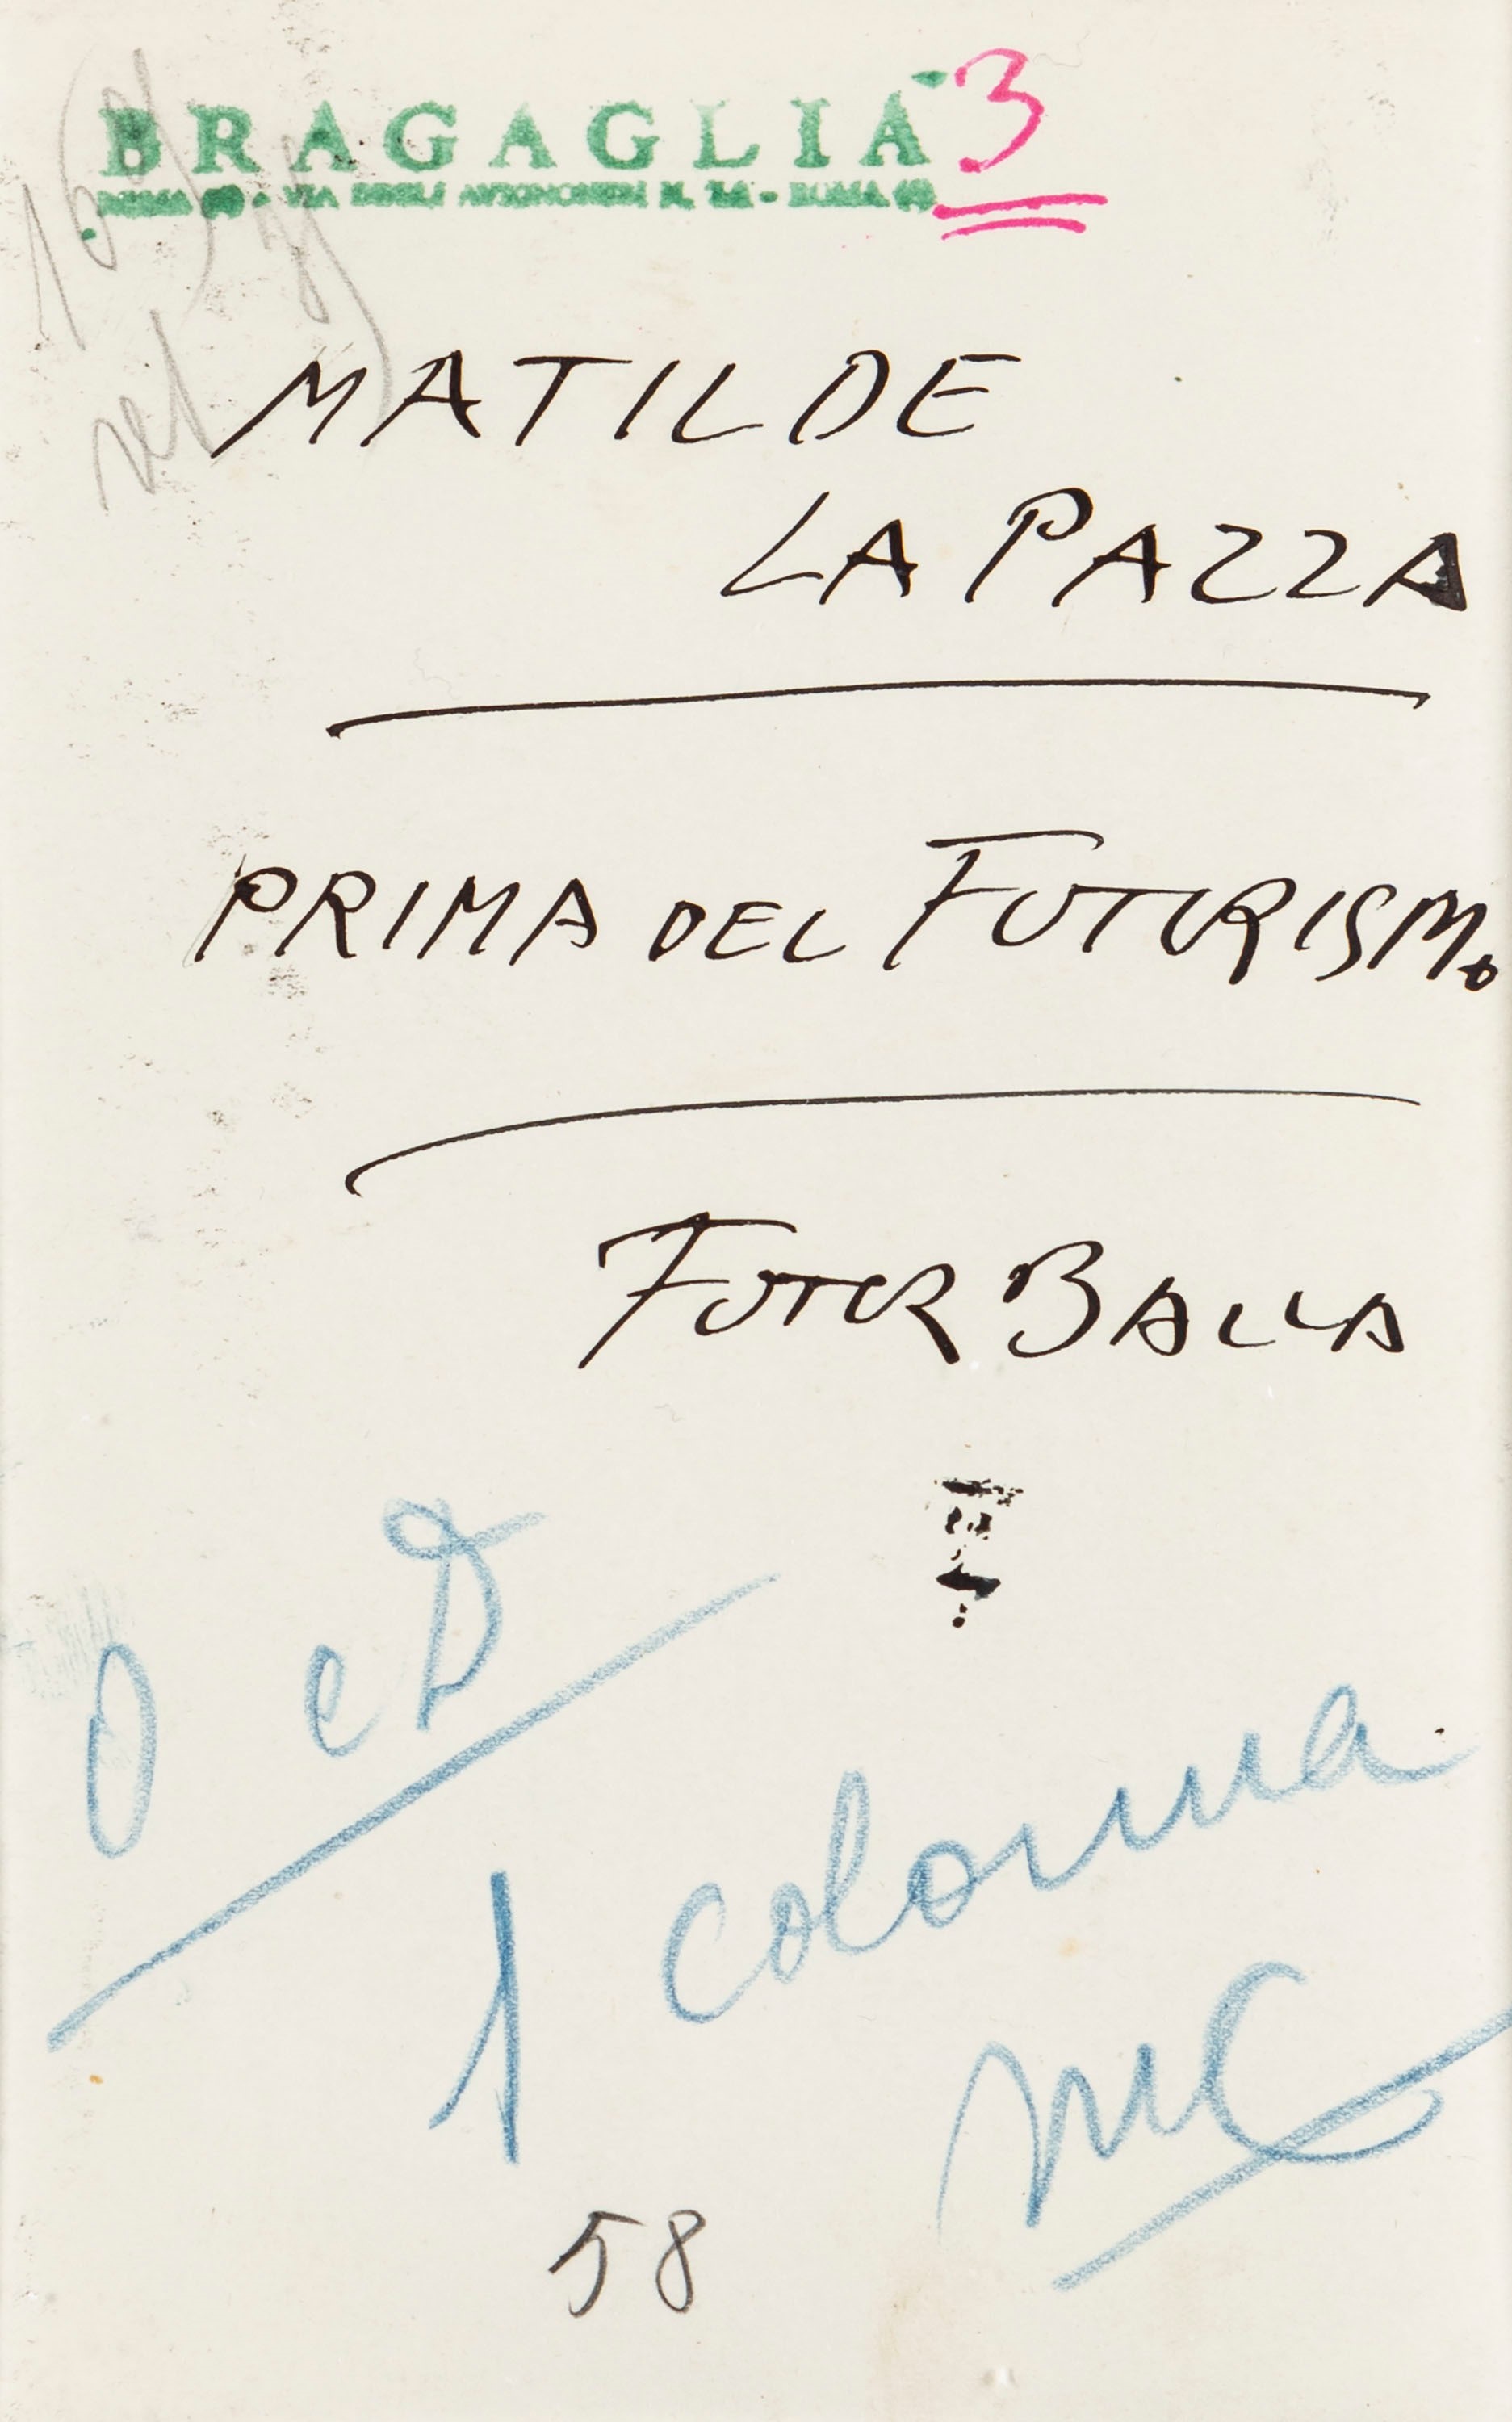 BRAGAGLIA 3
VIA DEGLI AVIGNONESI N. - ROMA
MATILDE
LA PAZZA
PRIMA DEL FUTURISMo
FUTUR BALLA
0 e D
1 colonna
MC
58